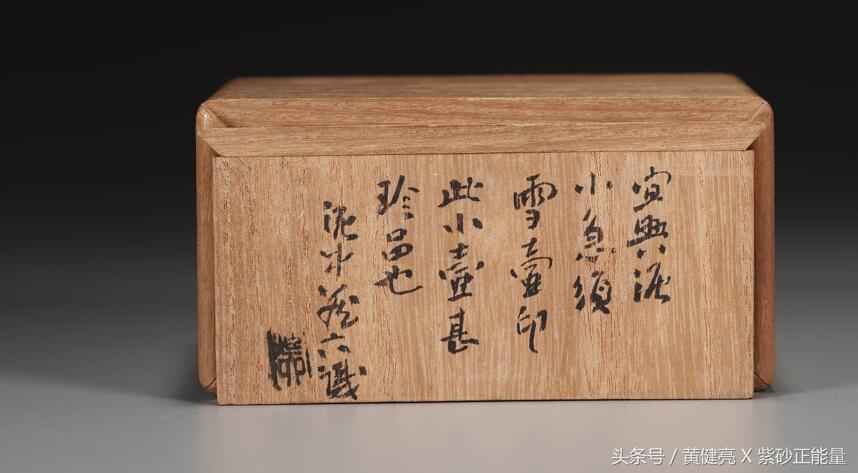 宜興泥
小急須
雪壺印
此小壺甚
珍品也
泥水蔵六識
头条号 / 黄健亮 X 紫砂正能量